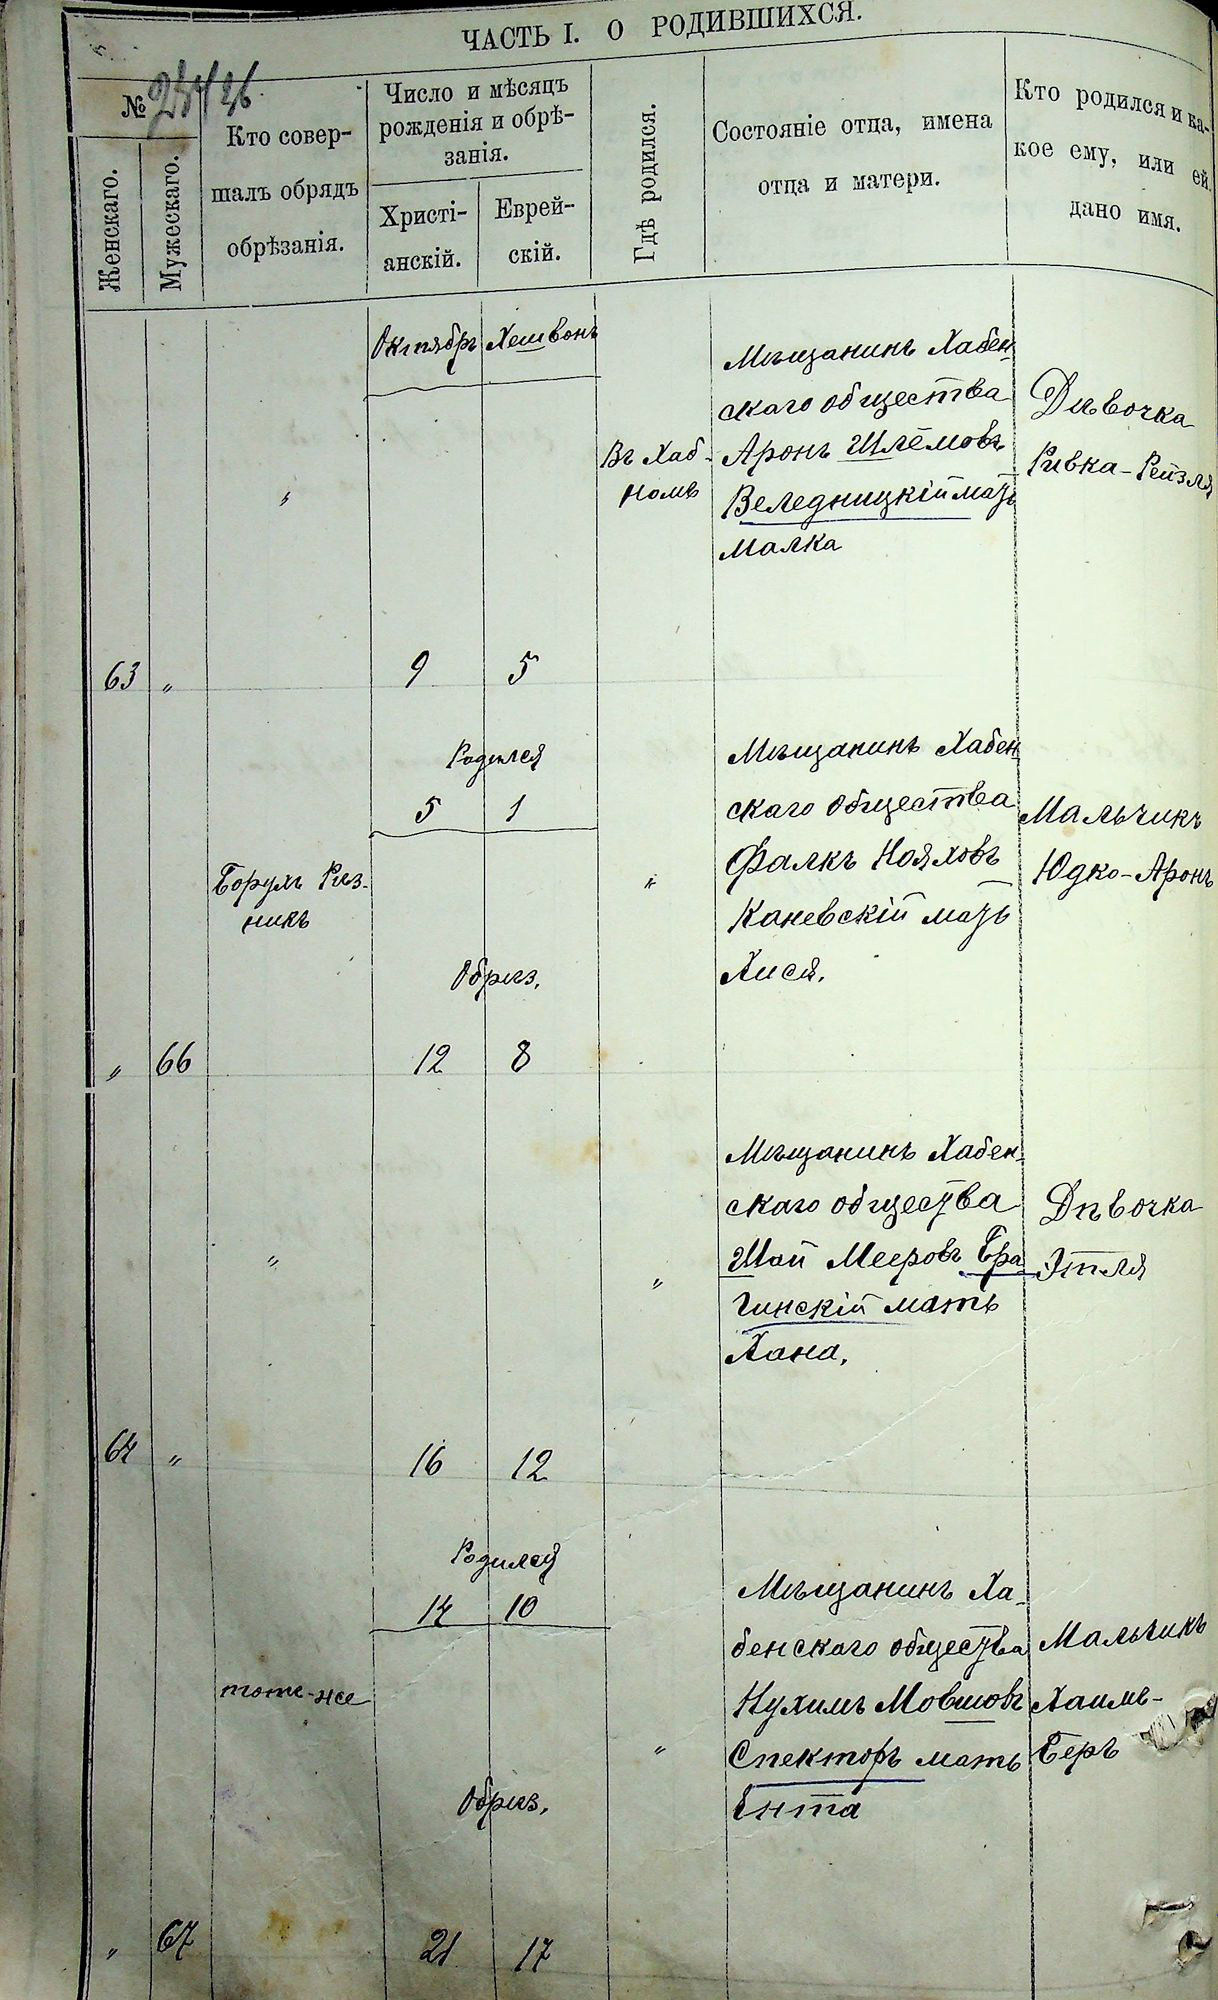 ЧАСТЬ I. О РОДИВШИХСЯ.
№
Женскаго.
Мужескаго.
Кто совер-
шалъ обрядъ
обрѣзанія.
Число и мѣсяцъ
рожденія и обрѣ-
занія.
Христі-
анскій.
Еврей-
скій.
Гдѣ родился.
Состояніе отца, имена
отца и матери.
Кто родился и ка-
кое ему, или ей
дано имя.
Октябрь Хешвонъ
63 „
„
9 5
Въ Хаб-
номъ
Мѣщанинъ Хабен-
скаго общества
Аронъ Шлемовъ
Веледницкій мать
Малка
Дѣвочка
Ривка-Рейзля
„ 66
Борухъ Рѣз-
никъ
Родился
5 1
Обрѣз.
12 8
„
Мѣщанинъ Хабен
скаго общества
Фалкъ Нояховъ
Каневскій мать
Хися.
Мальчикъ
Юдко-Аронъ
64 „
„
16 12
„
Мѣщанинъ Хабен-
скаго общества
Шай Мееровъ Бра
гинскій мать
Хана.
Дѣвочка
Этля
„ 67
тотъ-же
Родился
14 10
Обрѣз.
21 17
„
Мѣщанинъ Ха-
бенскаго общества
Нухимъ Мовшовъ
Спекторъ мать
Ента
Мальчикъ
Хаимъ-
Беръ